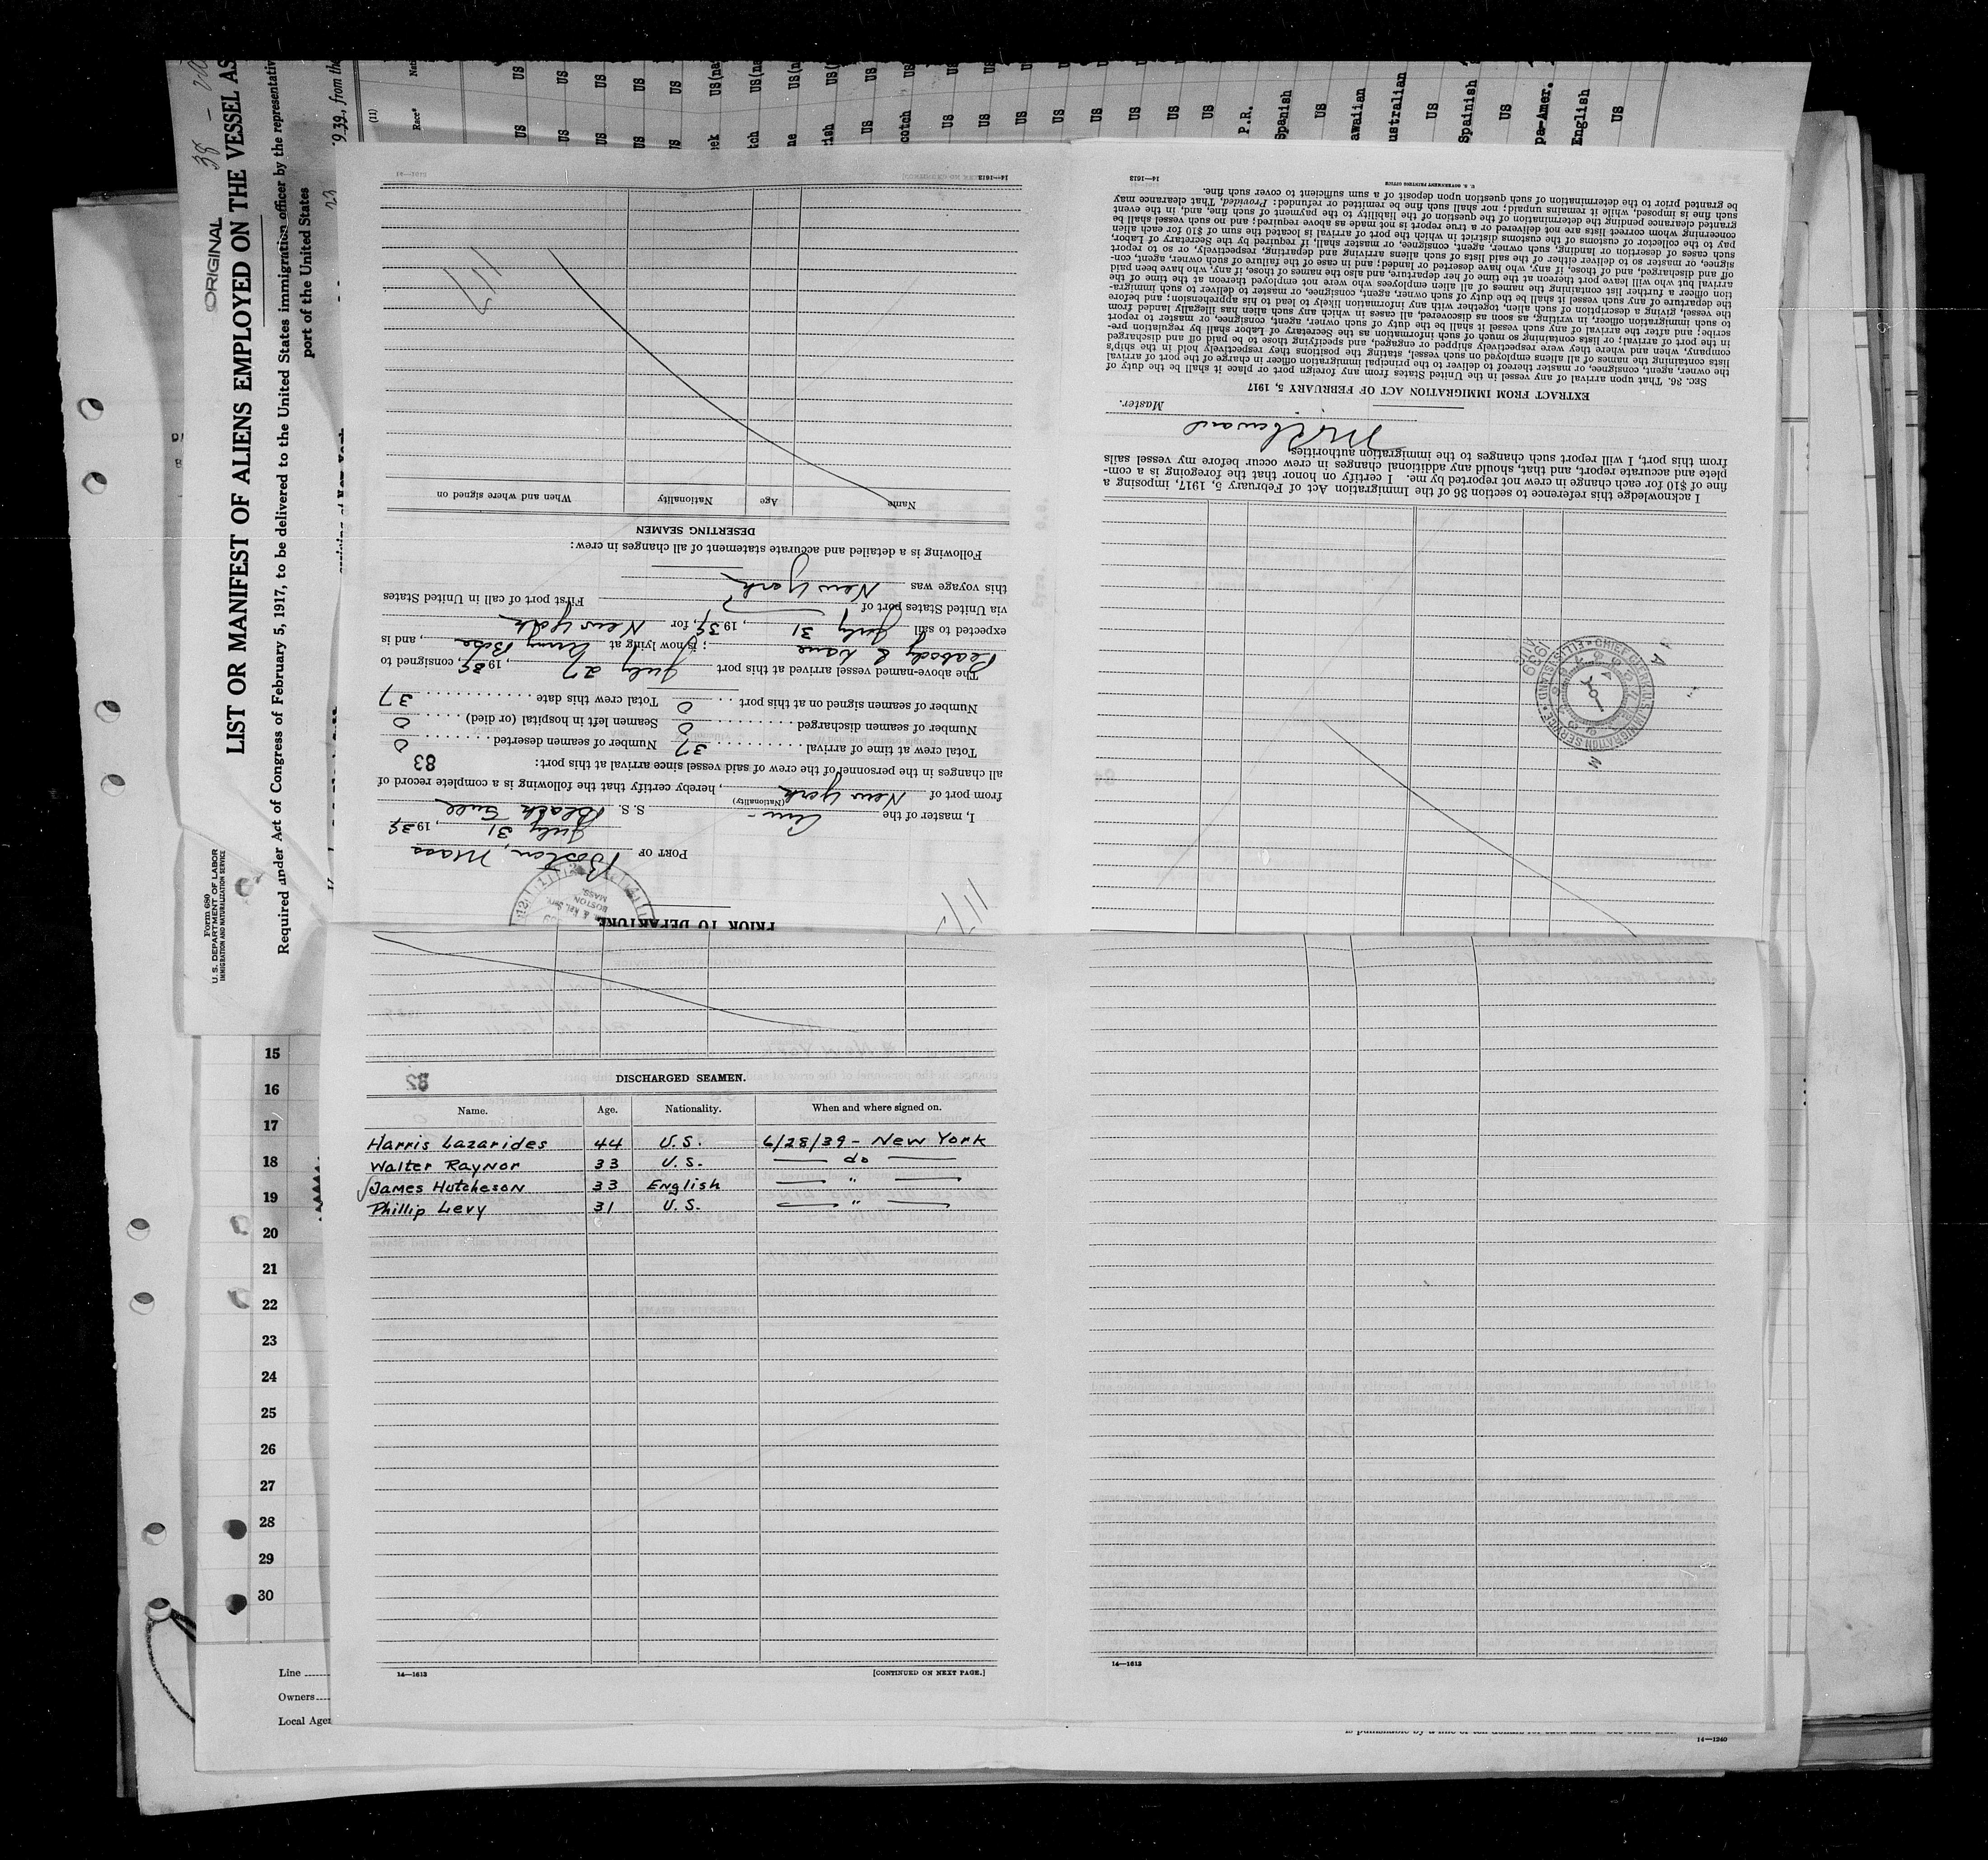 ORIGINAL
LIST OR MANIFEST OF ALIENS EMPLOYED ON THE VESSEL AS
Required under Act of Congress of February 5, 1917, to be delivered to the United States immigration officer by the representativ
port of the United States
Form 680
U. S. DEPARTMENT OF LABOR
IMMIGRATION AND NATURALIZATION SERVICE
(11)
Race*
US
US
US
US
US
US
US
US
US
US
US(na
US(na
US(n
US(n
US
US
US
US
US
US
US
US
US
US
US
US
US
US
P.R.
Spanish
US
awaiian
ustralian
US
Spanish
US
pa-Amer.
English
US
PRIOR TO DEPARTURE
PORT OF Boston, Mass
July 31, 1939
I, master of the Am- S. S. Black Gull
(Nationality)
from port of New York, hereby certify that the following is a complete record of
all changes in the personnel of the crew of said vessel since arrival at this port:
83
Total crew at time of arrival 37 Number of seamen deserted 0
Number of seamen discharged 0 Seamen left in hospital (or died) 0
Number of seamen signed on at this port 0 Total crew this date 37
The above-named vessel arrived at this port July 27, 1939, consigned to
Peabody & Lane; is now lying at Army Base, and is
expected to sail July 31, 1939, for New York
via United States port of First port of call in United States
this voyage was New York
Following is a detailed and accurate statement of all changes in crew:
DESERTING SEAMEN
Name Age Nationality When and where signed on
14—1613
I acknowledge this reference to section 36 of the Immigration Act of February 5, 1917, imposing a
fine of $10 for each change in crew not reported by me. I certify on honor that the foregoing is a com-
plete and accurate report, and that, should any additional changes in crew occur before my vessel sails
from this port, I will report such changes to the immigration authorities.
Master.
EXTRACT FROM IMMIGRATION ACT OF FEBRUARY 5, 1917
SEC. 36. That upon arrival of any vessel in the United States from any foreign port or place it shall be the duty of
the owner, agent, consignee, or master thereof to deliver to the principal immigration officer in charge of the port of arrival
lists containing the names of all aliens employed on such vessel, stating the positions they respectively hold in the ship's
company, when and where they were respectively shipped or engaged, and specifying those to be paid off and discharged
in the port of arrival; or lists containing so much of such information as the Secretary of Labor shall by regulation pre-
scribe; and after the arrival of any such vessel it shall be the duty of such owner, agent, consignee, or master to report
to such immigration officer, in writing, as soon as discovered, all cases in which any such alien has illegally landed from
the vessel, giving a description of such alien, together with any information likely to lead to his apprehension; and before
the departure of any such vessel it shall be the duty of such owner, agent, consignee, or master to deliver to such immigra-
tion officer a further list containing the names of all alien employees who were not employed thereon at the time of the
arrival but who will leave port thereon at the time of her departure, and also the names of those, if any, who have been paid
off and discharged, and of those, if any, who have deserted or landed; and in case of the failure of such owner, agent, con-
signee, or master so to deliver either of the said lists of such aliens arriving and departing, respectively, or so to report
such cases of desertion or landing, such owner, agent, consignee, or master shall, if required by the Secretary of Labor,
pay to the collector of customs of the customs district in which the port of arrival is located the sum of $10 for each alien
concerning whom correct lists are not delivered or a true report is not made as above required; and no such vessel shall be
granted clearance pending the determination of the question of the liability to the payment of such fine, and, in the event
such fine is imposed, while it remains unpaid; nor shall such fine be remitted or refunded: Provided, That clearance may
be granted prior to the determination of such question upon deposit of a sum sufficient to cover such fine.
U. S. GOVERNMENT PRINTING OFFICE
14—1613
DISCHARGED SEAMEN.
Name. Age. Nationality. When and where signed on.
Harris Lazarides 44 U.S. 6/28/39 - New York
Walter Raynor 33 U.S. do
James Hutcheson 33 English "
Phillip Levy 31 U.S. "
14—1613
[CONTINUED ON NEXT PAGE.]
14—1613
15
16
17
18
19
20
21
22
23
24
25
26
27
28
29
30
Line
Owners
Local Agen
14—1240